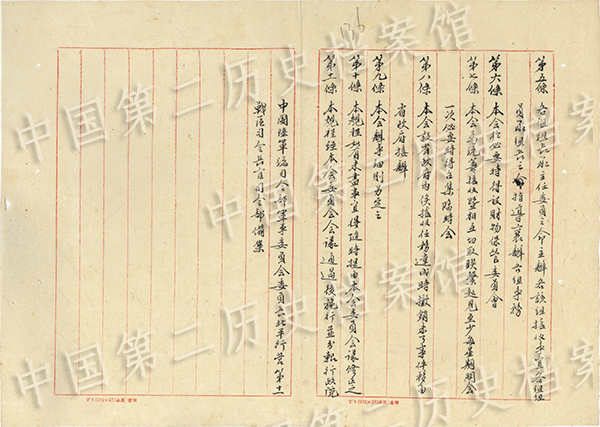 第五條 各組組長承主任委員之命主辦各該組接收事宜各組組
員承組長之命指導之襄辦各組事務
第六條 本會於必要時得設財物保管委員會
第七條 本會為統籌接收暨相互切取聯繫起見至少每星期開會
一次必要時得召集臨時會
第八條 本會設省政府內俟接收任務達成時撤銷未了事件移由
省政府接辦
第九條 本會辦事細則另定之
第十條 本規程如有未盡事宜得隨時提由本會委員會議修正之
第十一條 本規程經本會委員會會議通過後施行並分報行政院
中國陸軍總司令部軍事委員會委員長北平行營第十一
戰區司令長官司令部備案
中国第二历史档案馆
中国第二历史档案馆
中国第二历史档案馆